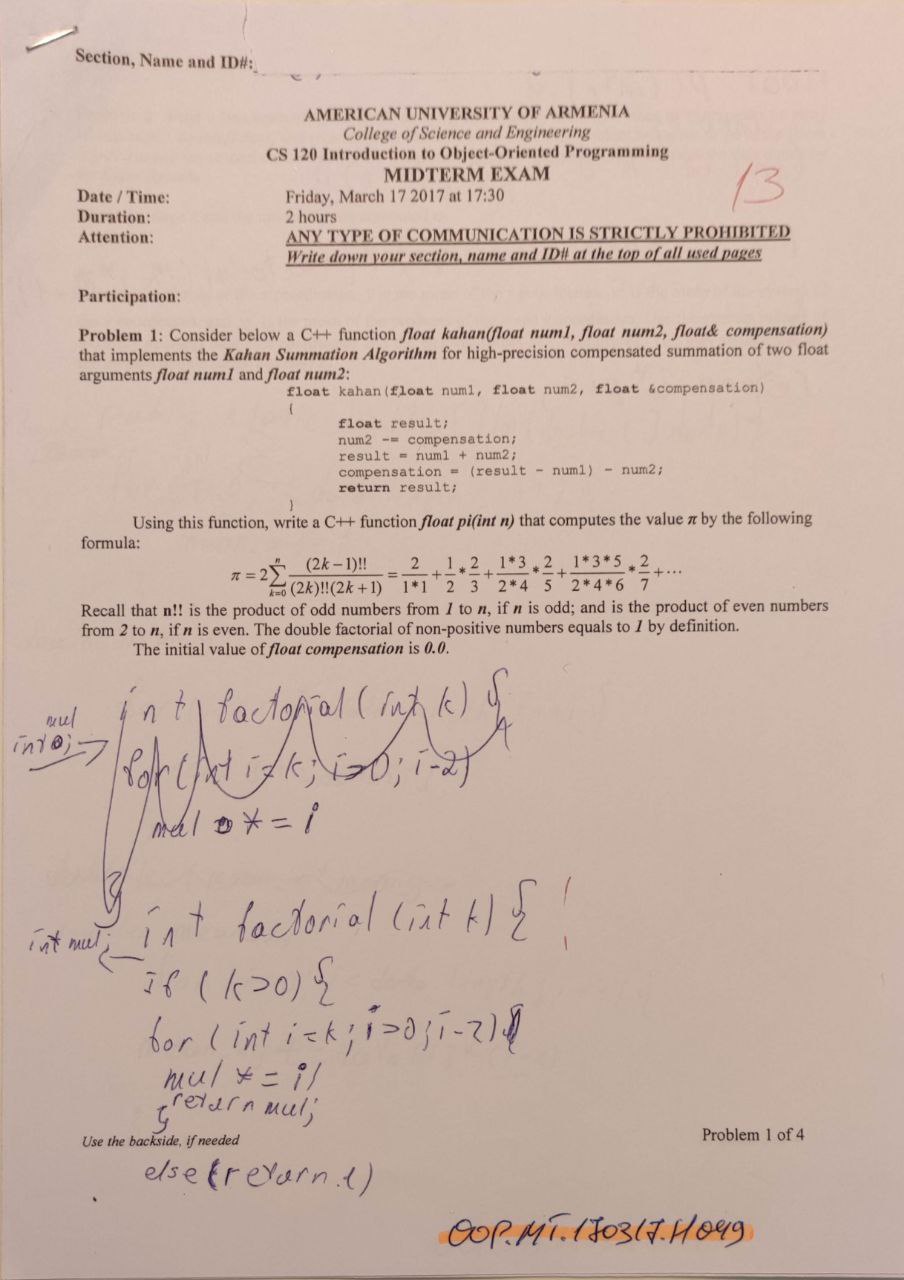 Section, Name and ID#:
AMERICAN UNIVERSITY OF ARMENIA
College of Science and Engineering
CS 120 Introduction to Object-Oriented Programming
MIDTERM EXAM
13
Date / Time: Friday, March 17 2017 at 17:30
Duration: 2 hours
Attention: ANY TYPE OF COMMUNICATION IS STRICTLY PROHIBITED
Write down your section, name and ID# at the top of all used pages
Participation:
Problem 1: Consider below a C++ function float kahan(float num1, float num2, float& compensation)
that implements the Kahan Summation Algorithm for high-precision compensated summation of two float
arguments float num1 and float num2:
float kahan(float num1, float num2, float &compensation)
{
float result;
num2 -= compensation;
result = num1 + num2;
compensation = (result - num1) - num2;
return result;
}
Using this function, write a C++ function float pi(int n) that computes the value π by the following
formula:
π = 2∑_{k=0}^{n} (2k−1)!!/((2k)!!(2k+1)) = 2/(1*1) + 1/2 * 2/3 + (1*3)/(2*4) * 2/5 + (1*3*5)/(2*4*6) * 2/7 + ⋯
Recall that n!! is the product of odd numbers from 1 to n, if n is odd; and is the product of even numbers
from 2 to n, if n is even. The double factorial of non-positive numbers equals to 1 by definition.
The initial value of float compensation is 0.0.
int factorial (int k) {
mul
int
for (int i=k; i>0; i-2)
mul *= i
int factorial (int k) { !
int mul;
if (k>0) {
for (int i=k; i>0; i-2)
mul *= i;
} return mul;
Use the backside, if needed
Problem 1 of 4
else (return 1)
OOP.MT.170317.H049